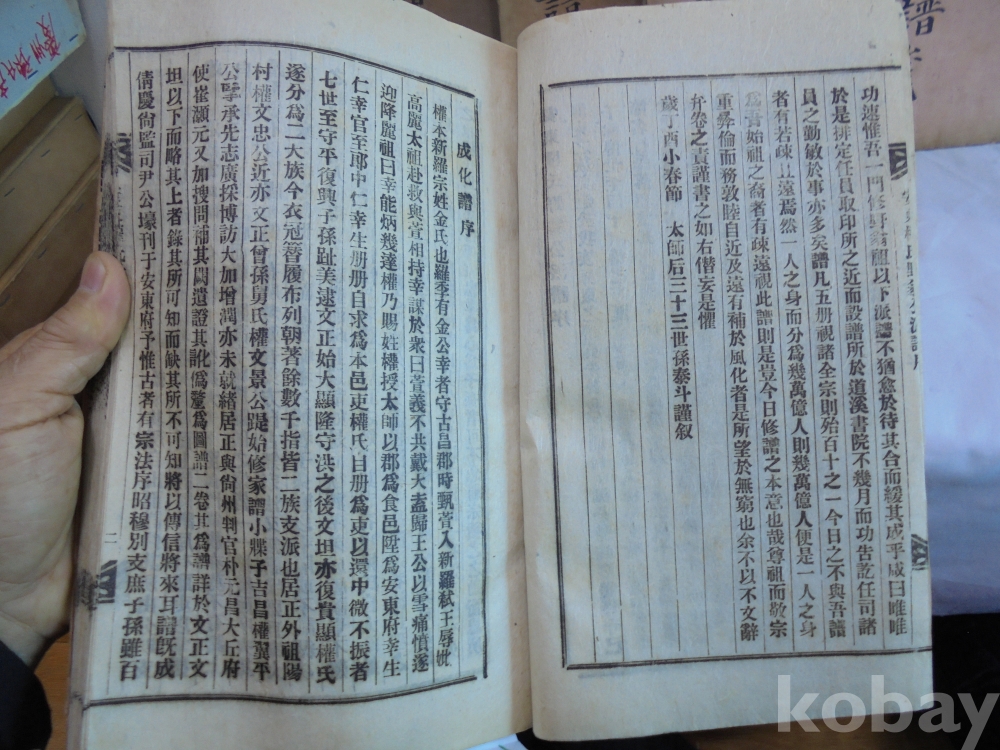 功速惟吾一門修
祖以下派譜不猶愈於待其合而緩其成乎咸曰唯唯
於是排定任員取印所之近而設譜所於道溪書院不幾月而功告訖任司諸
員之勤敏於事亦多矣譜凡五册視諸全宗則殆百十之一今日之不與吾譜
者有若疎且遠焉然一人之身而分爲幾萬億人則幾萬億人便是一人之身
爲吾始祖之裔者有疎遠視此譜則是豈今日修譜之本意也哉尊祖而敬宗
重彝倫而務敦睦自近及遠有補於風化者是所望於無窮也余不以不文辭
弁卷之責謹書之如右僭妄是懼
歲丁酉小春節 太師后三十三世孫泰斗謹叙
成化譜序
權本新羅宗姓金氏也羅季有金公幸者守古昌郡時甄萱入新羅弑王辱妣
高麗太祖赴救與萱相持幸謀於衆曰萱義不共戴天盍歸王公以雪痛憤遂
迎降麗祖曰幸能炳幾達權乃賜姓權授太師以郡爲食邑陞爲安東府幸生
仁幸官至郎中仁幸生册册自求爲本邑吏權氏自册爲吏以還中微不振者
七世至守平復興子孫趾美逮文正始大顯隆守洪之後文坦亦復貴顯權氏
遂分爲二大族今衣冠簪履布列朝著餘數千指皆二族支派也居正外祖陽
村權文忠公近亦文正曾孫舅氏權文景公踶始修家譜小牒子吉昌權翼平
公擥承先志廣採博訪大加增潤亦未就緒居正與尙州判官朴元昌大丘府
使崔灝元又加搜問補其闕遺證其訛僞釐爲圖譜二卷其爲譜詳於文正文
坦以下而略其上者錄其所可知而缺其所不可知將以傳信將來耳譜旣成
倩慶尙監司尹公壕刊于安東府予惟古者有宗法序昭穆別支庶子孫雖百
二
譜
kobay